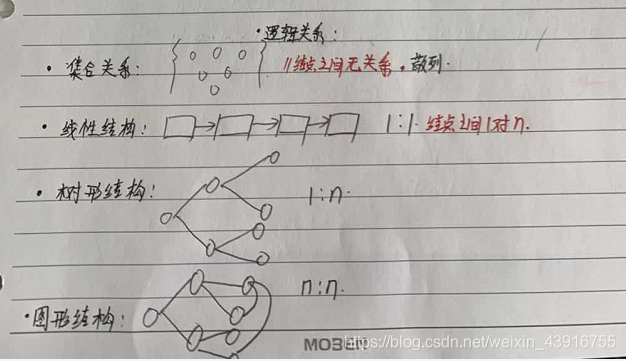 ·逻辑关系:
·集合关系: //结点之间无关系. 散列.
·线性结构: 1:1. 结点之间1对n.
·树形结构: 1:n.
·图形结构: n:n.
https://blog.csdn.net/weixin_43916755